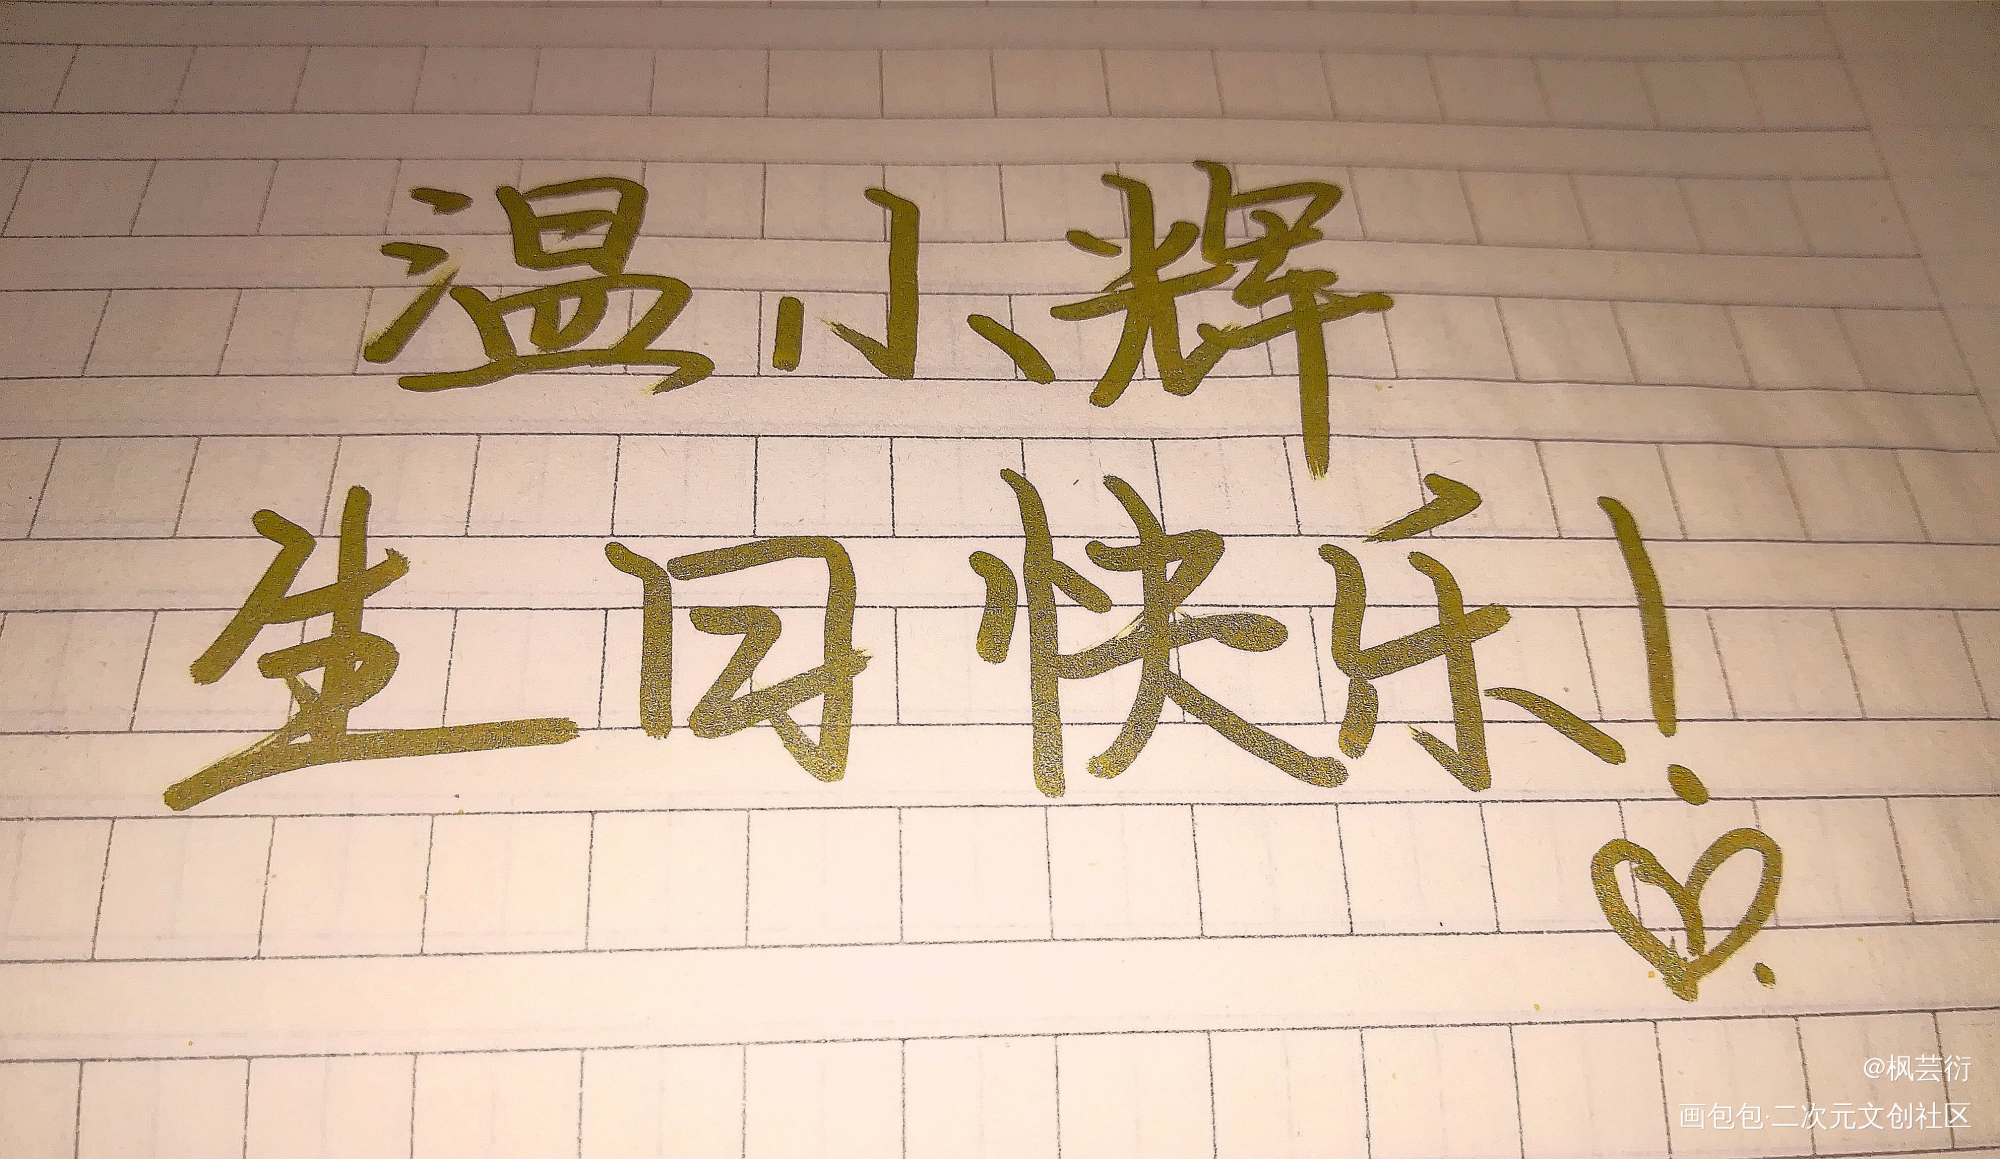 温小辉
生日快乐!
@枫芸衍
画包包·二次元文创社区